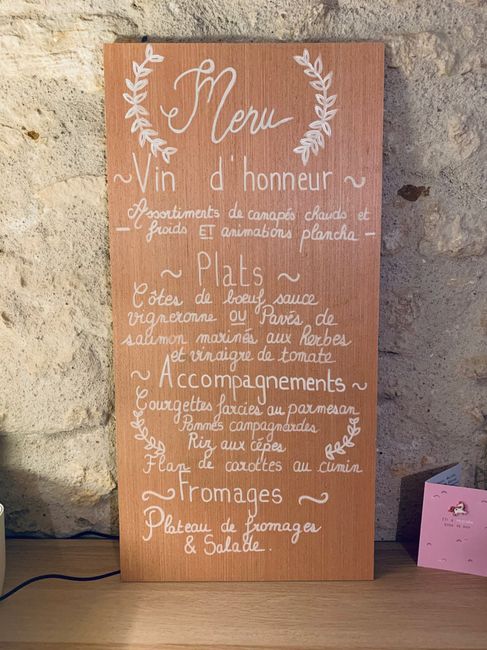 Menu
~ Vin d'honneur ~
Assortiments de canapés chauds et
- froids ET animations plancha -
~ Plats ~
Côtes de boeuf sauce
vigneronne ou Pavés de
saumon marinés aux herbes
et vinaigre de tomate
~ Accompagnements ~
Courgettes farcies au parmesan
Pommes campagnardes
Riz aux cèpes
Flan de carottes au cumin
~ Fromages ~
Plateau de fromages
& Salade.